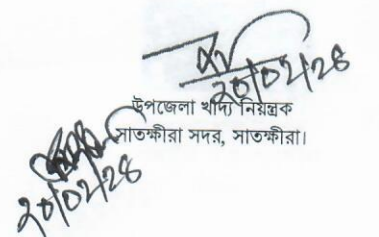 ২০/০২/২৪
উপজেলা খাদ্য নিয়ন্ত্রক
সাতক্ষীরা সদর, সাতক্ষীরা।
২০/০২/২৪